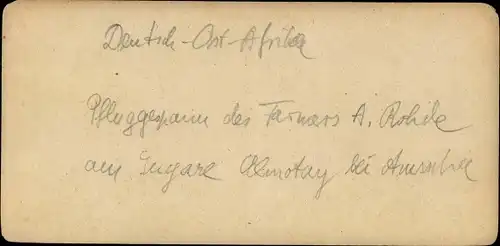 Deutsch-Ost-Afrika
Pfluggespann des Farmers A. Rohde
am Engare Olmotony bei Aruscha